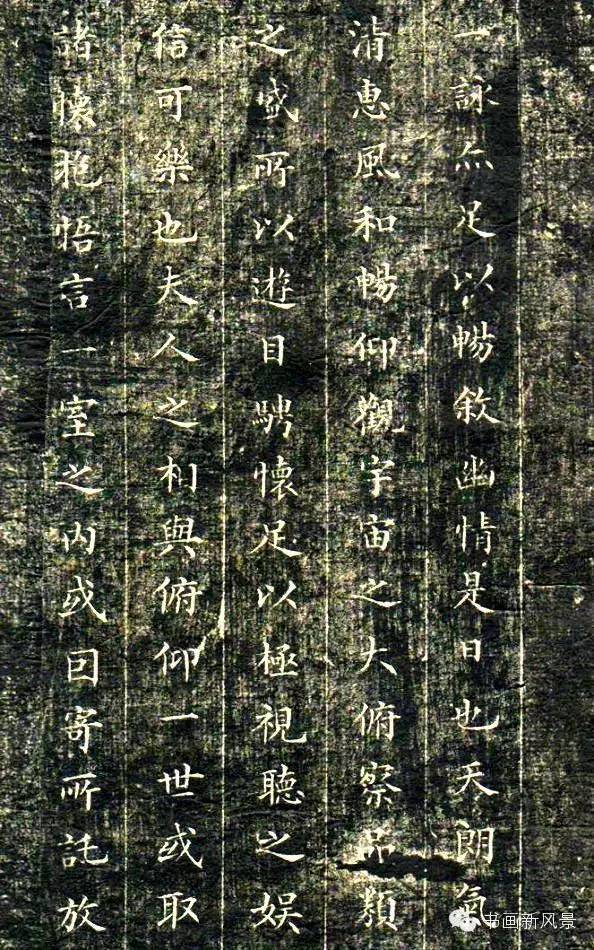 一詠亦足以暢敘幽情是日也天朗氣
清惠風和暢仰觀宇宙之大俯察品類
之盛所以遊目騁懷足以極視聽之娛
信可樂也夫人之相與俯仰一世或取
諸懷抱悟言一室之內或因寄所託放
书画新风景